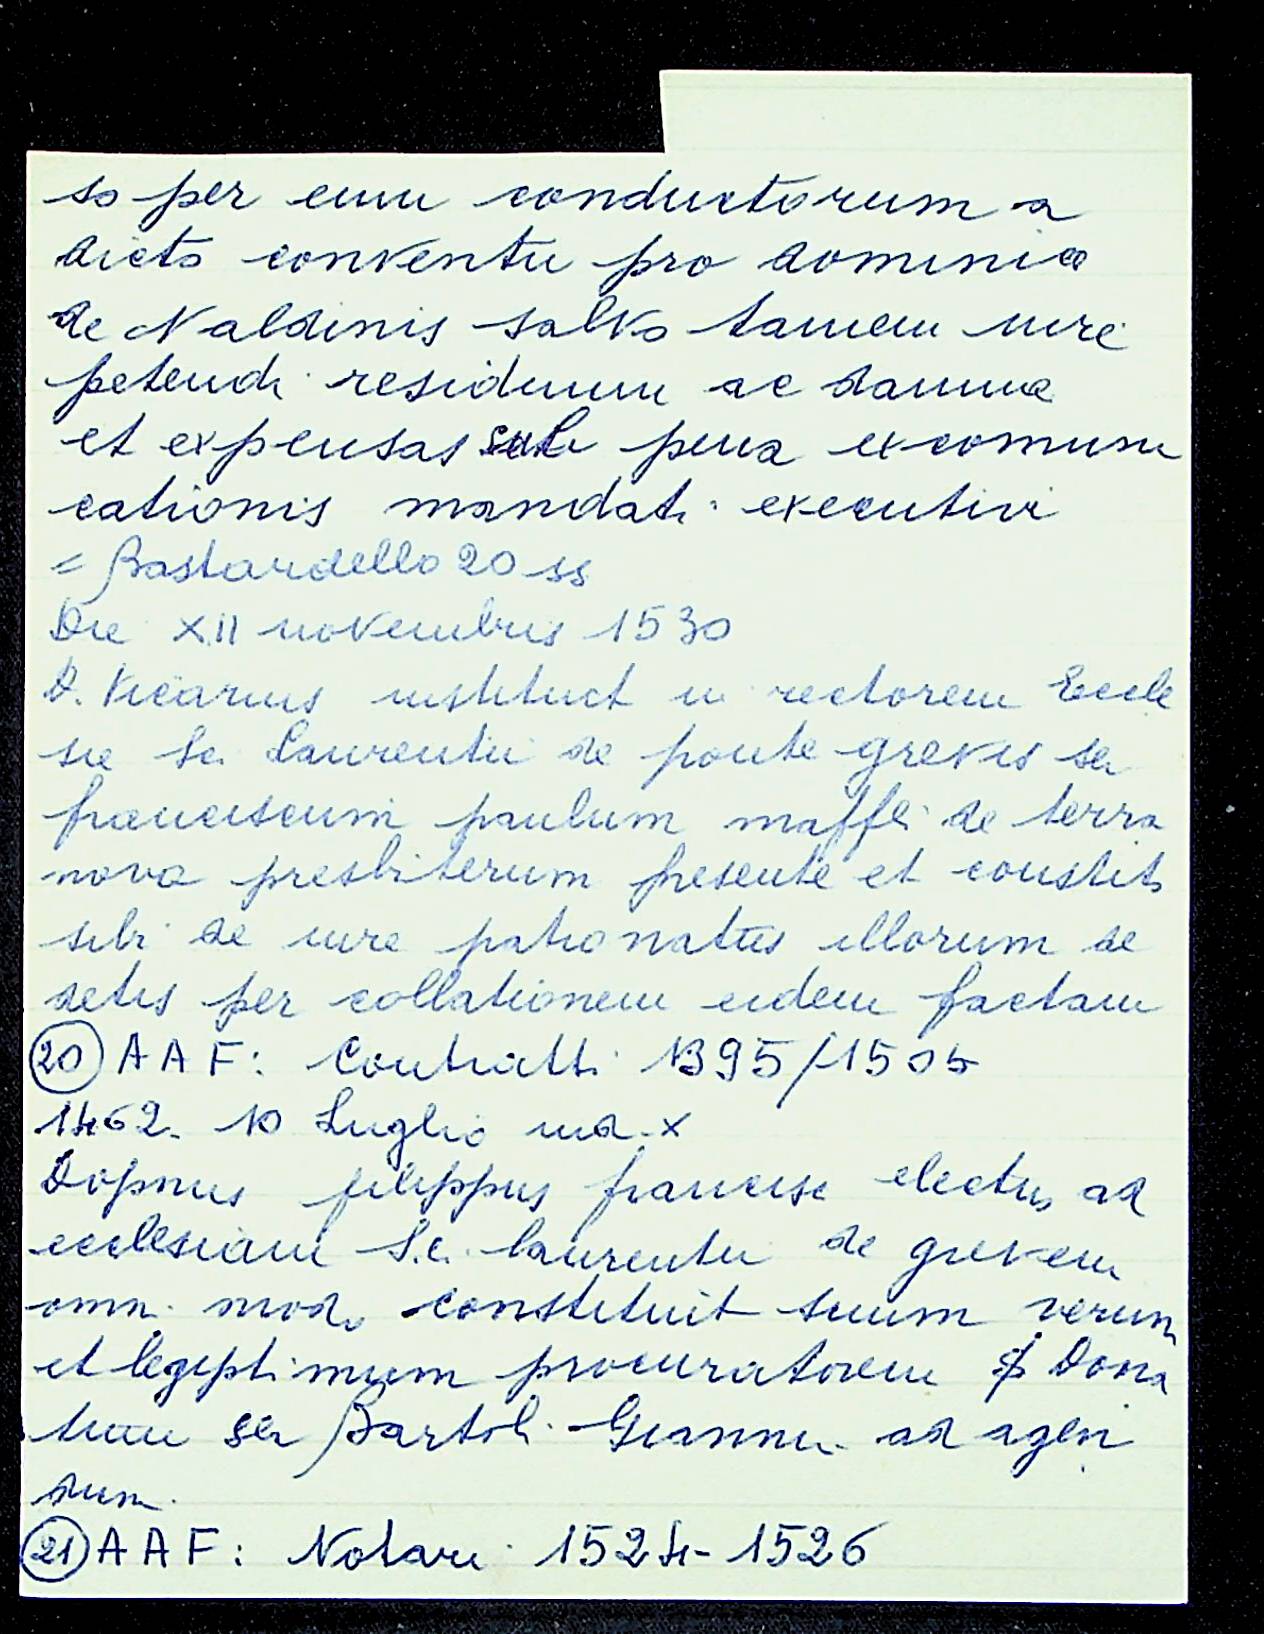 so per eum conductorum a
dicto conventu pro dominica
de Naldinis salvo tamen iure
petendi residuum ac damna
et expensas sub pena excomuni
cationis mandati executivi
= Bastardello 20 ss
Die XII novembris 1530
D. Vicarius instituit in rectorem Eccle
sie Sci Laurentii de ponte grevis ser
franciscum paulum maffei de terra
nova presbiterum presente et constit.
sibi de iure patronatus illorum de
detis per collationem eidem factam
(20) A A F: Contratti 1395/1505
1462. 10 Luglio ind. X
Dopnus filippus francisc electus ad
ecclesiam S.c. laurentii de grevem
omn. mod. constituit suum verum
et legiptimum procuratorem Dona
tum ser Bartol. Giannii ad agen
dum.
(21) A A F: Notari 1524-1526